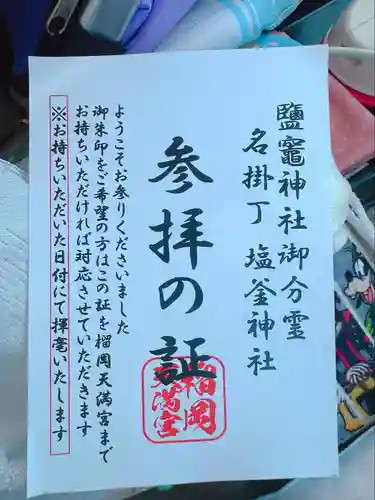 鹽竈神社御分霊
名掛丁 塩釜神社
参拝の証
榴岡
天満宮
ようこそお参りくださいました
御朱印をご希望の方はこの証を榴岡天満宮まで
お持ちいただければ対応させていただきます
※お持ちいただいた日付にて揮毫いたします